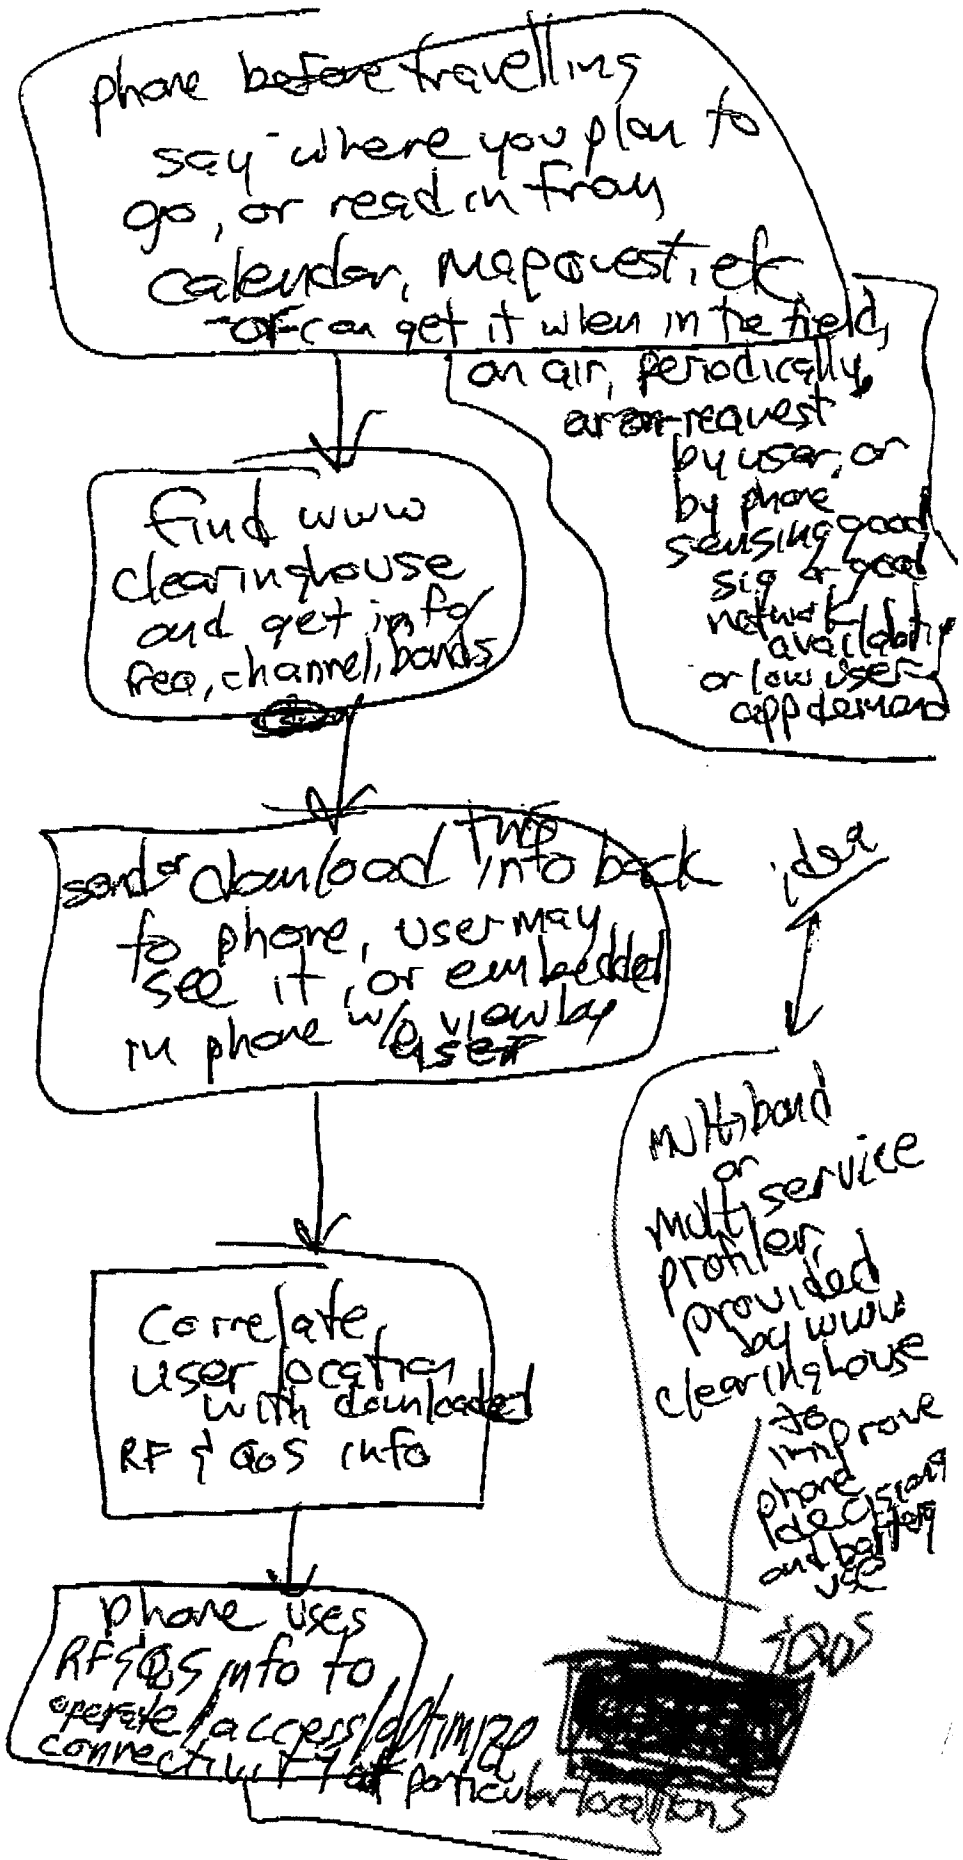 phone before travelling
say where you plan to
go, or read in from
calendar, Mapquest, etc
-or can get it when in the field,
on air, periodically,
or on request
by user, or
by phone
sensing good
sig or good
network
availability
or low user
app demand
find www
clearinghouse
and get info/
freq, channel, bands
send or download info back
to phone, user may
see it, or embedded
in phone w/o view by
user
idea
multiband
or
multiservice
profiler,
provided
by www
clearinghouse
to
improve
phone
decisions
and battery
use
+QoS
Correlate
user location
with downloaded
RF & QoS info
phone uses
RF & QoS info to
operate/access/optimize
connectivity at particular locations